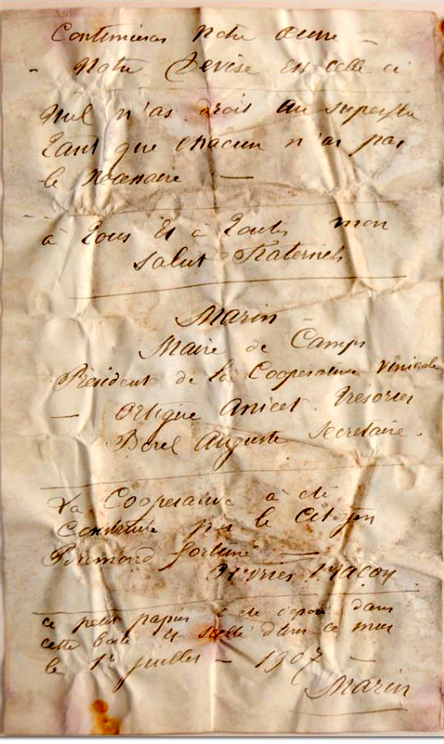 Continuera Notre Œuvre
- Notre Devise Est celle ci
Nul n'as droit au superflu
tant que chacun n'as pas
le necessaire —
à tous Et à toutes mon
salut Fraternel
Marin
Maire de Camps
President de la Cooperative Vinicole
— Ortigue Anicet Tresorier
Borel Auguste Secretaire
La Cooperative à été
Construite par le Citoyen
Bremond fortuné —
Ouvrier Maçon
ce petit papier à été déposé dans
cette Boite et scellé dans ce mur
le 1er juillet - 1907 -
Marin